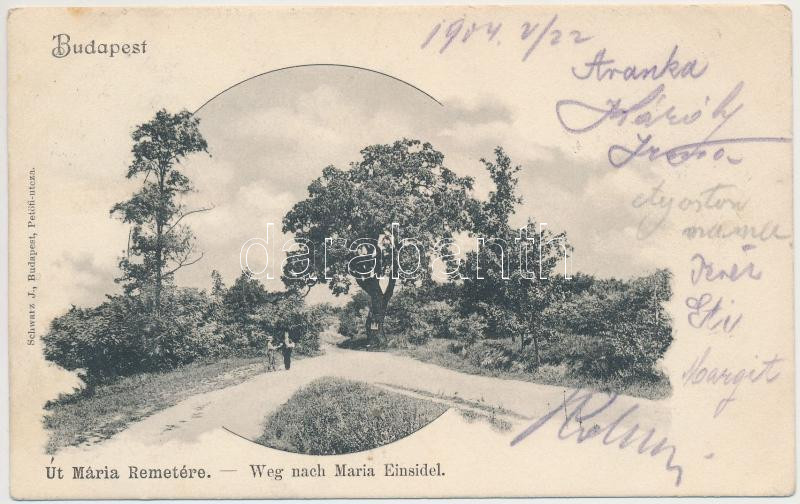 Budapest
1904. V/22
Aranka
Károly
Irma
Ágoston
mama
Imre
Margit
Schwatz J., Budapest, Petőfi-utcza.
darabanth
Út Mária Remetére. — Weg nach Maria Einsidel.